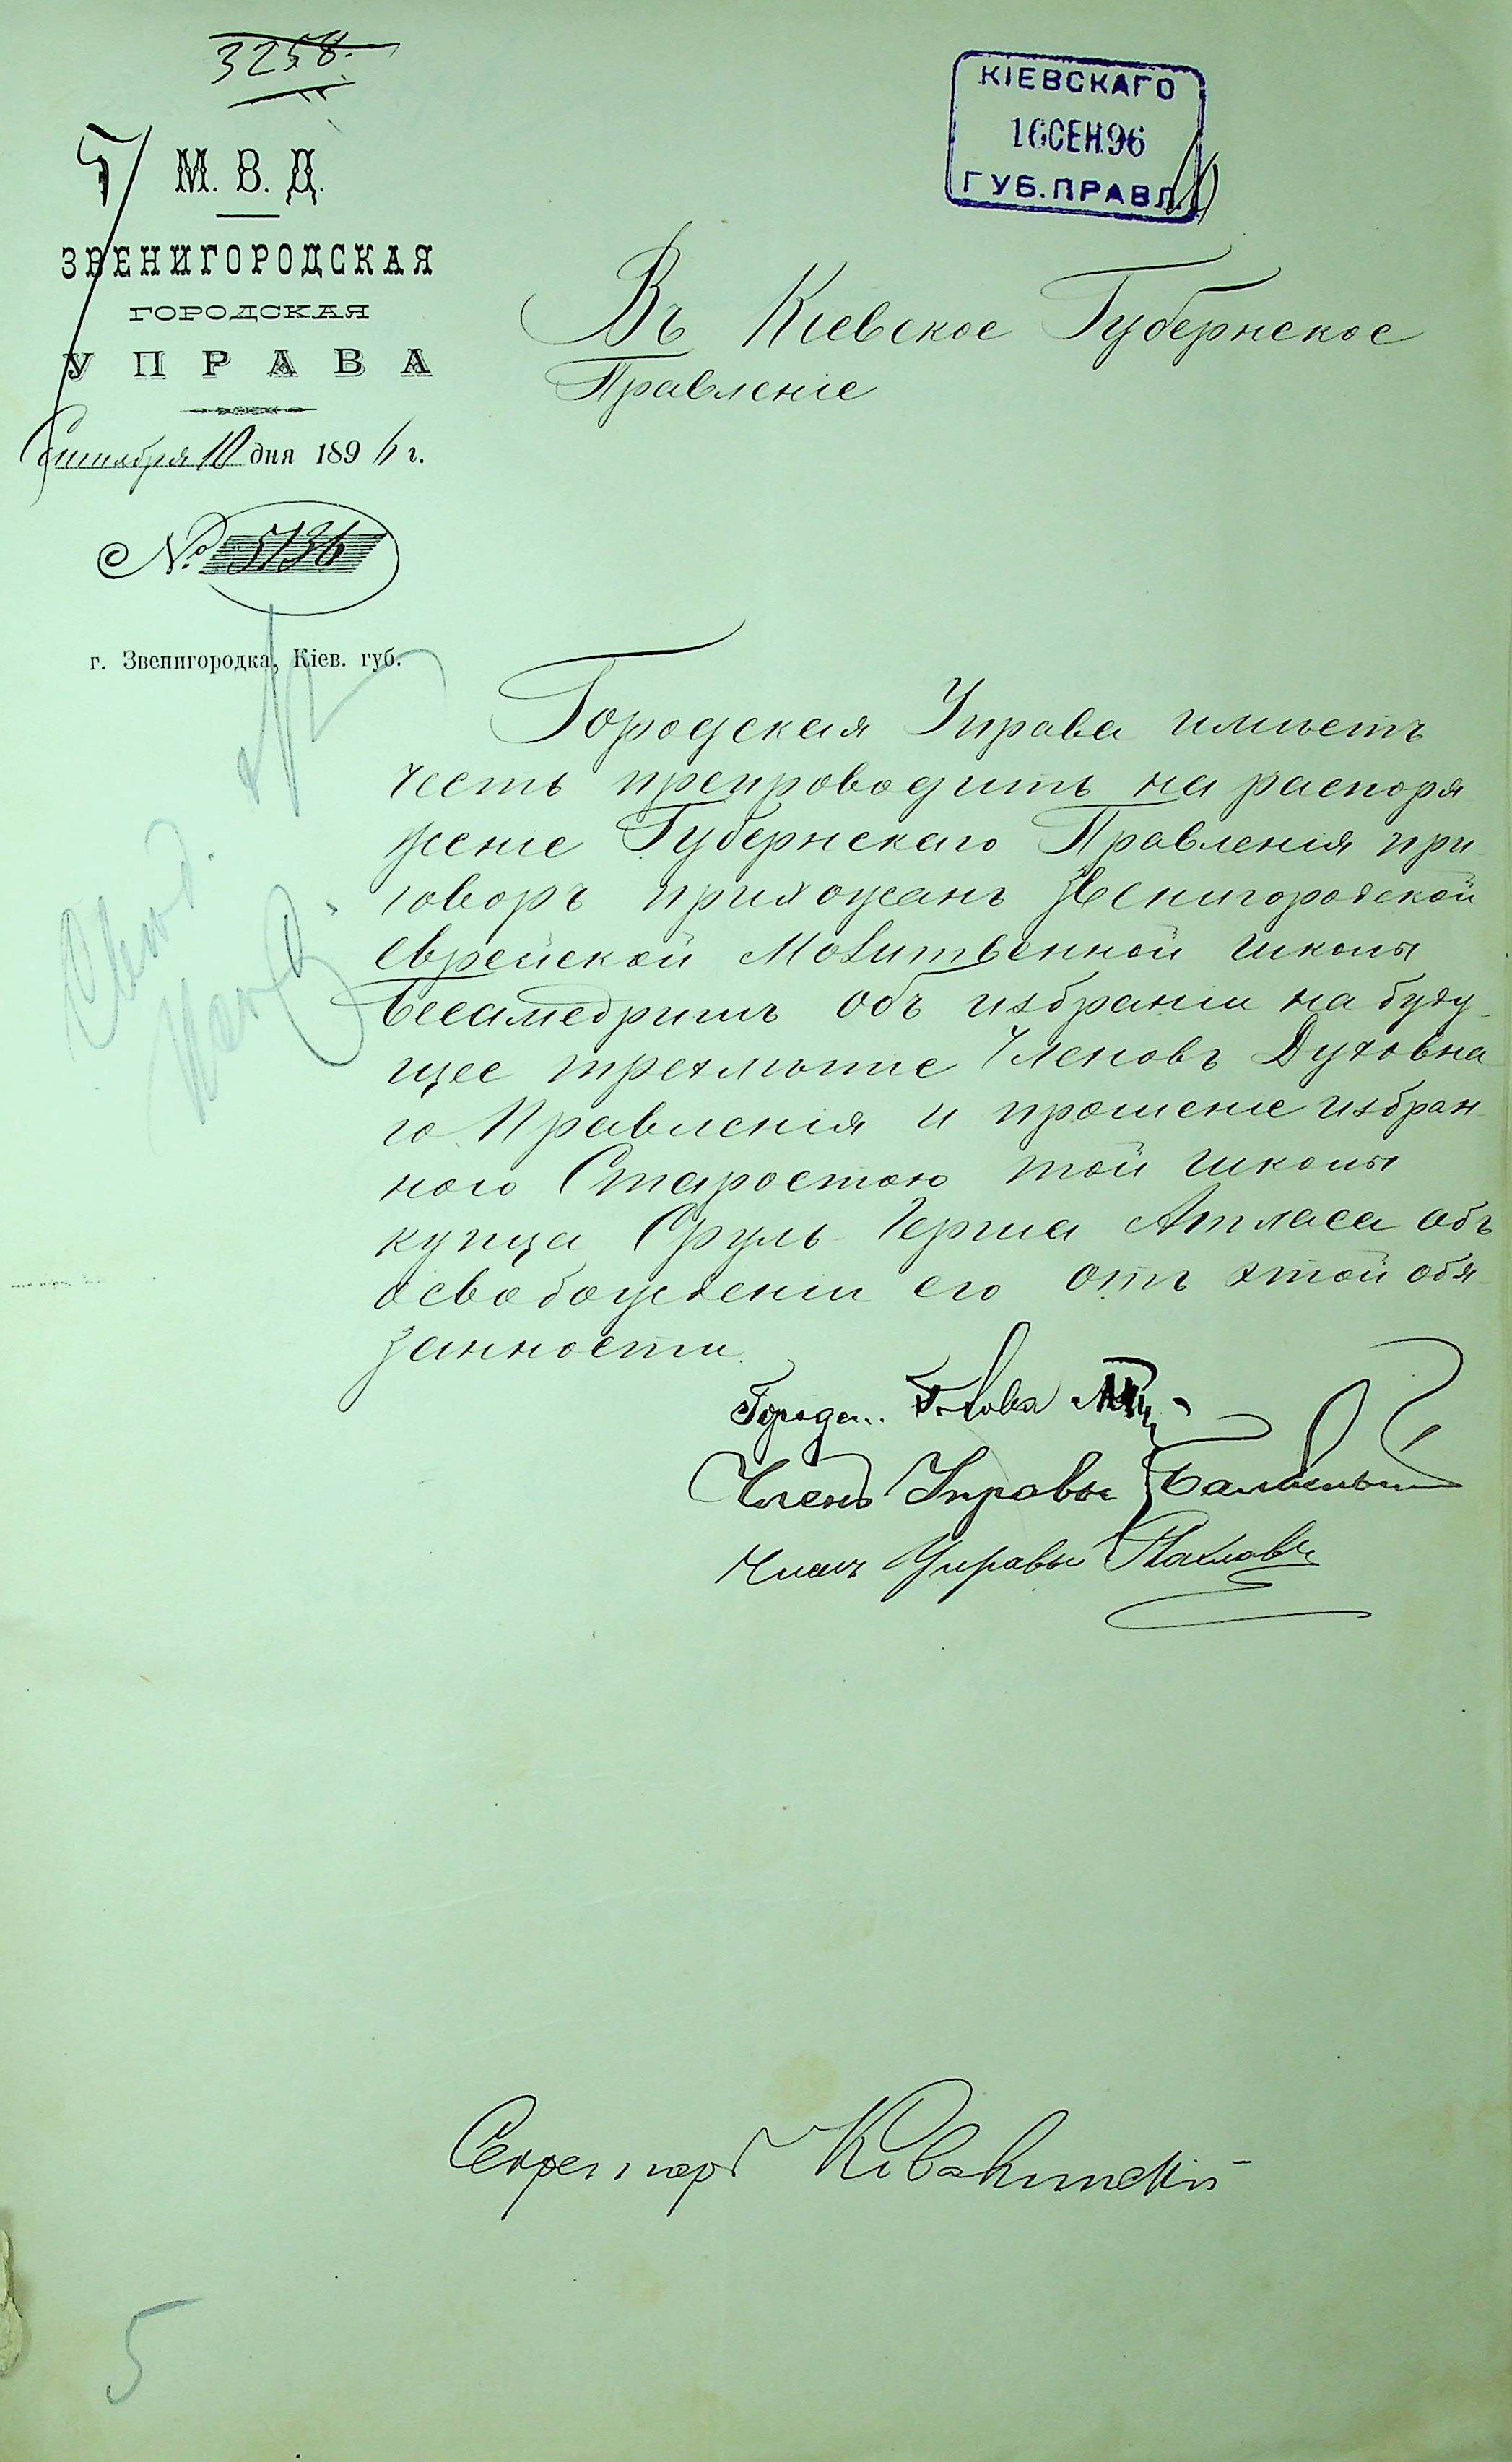 3258.
КІЕВСКАГО
16 СЕН. 96
ГУБ. ПРАВЛ.
М. В. Д.
ЗВЕНИГОРОДСКАЯ
ГОРОДСКАЯ
УПРАВА
Сентября 10 дня 1896 г.
№ 5136
г. Звенигородка, Кіев. губ.
Въ Кіевское Губернское
Правленіе
Городская Управа имѣетъ
честь препроводить на распоря
женіе Губернскаго Правленія при
говоръ прихожанъ Звенигородской
Еврейской Молитвенной школы
Бесамедришъ объ избраніи на буду-
щее трехлѣтіе Членовъ Духовна
го Правленія и прошеніе избран-
ного Старостою той школы
купца Сруль Герша Атласа объ
освобожденіи его отъ этой обя-
занности.
Голова
Членъ Управы
Членъ Управы
Секретарь
5